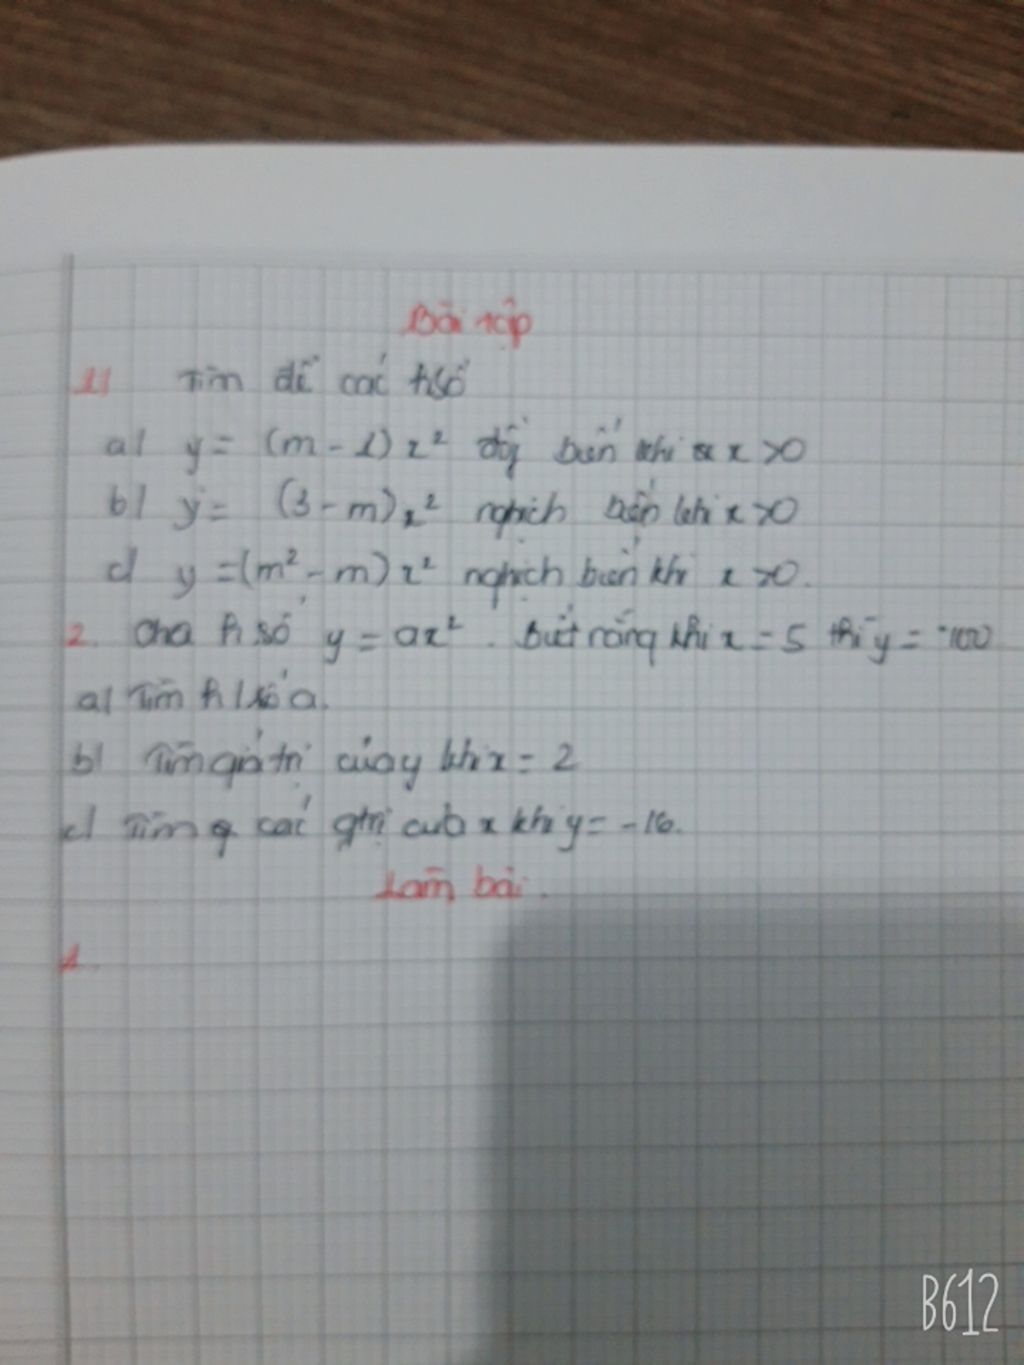 Bài tập
1) Tìm để các hsố
a) y = (m - 1)x² đồg biến khi x > 0
b) y = (3 - m)x² nghịch biến khi x > 0
c) y = (m² - m)x² nghịch biến khi x > 0.
2. Cho h số y = ax². Biết rằng khi x = 5 thì y = -100
a) Tìm h/số a.
b) Tìm giá trị của y khi x = 2
c) Tìm các gtrị của x khi y = -16.
Làm bài.
1.
B612